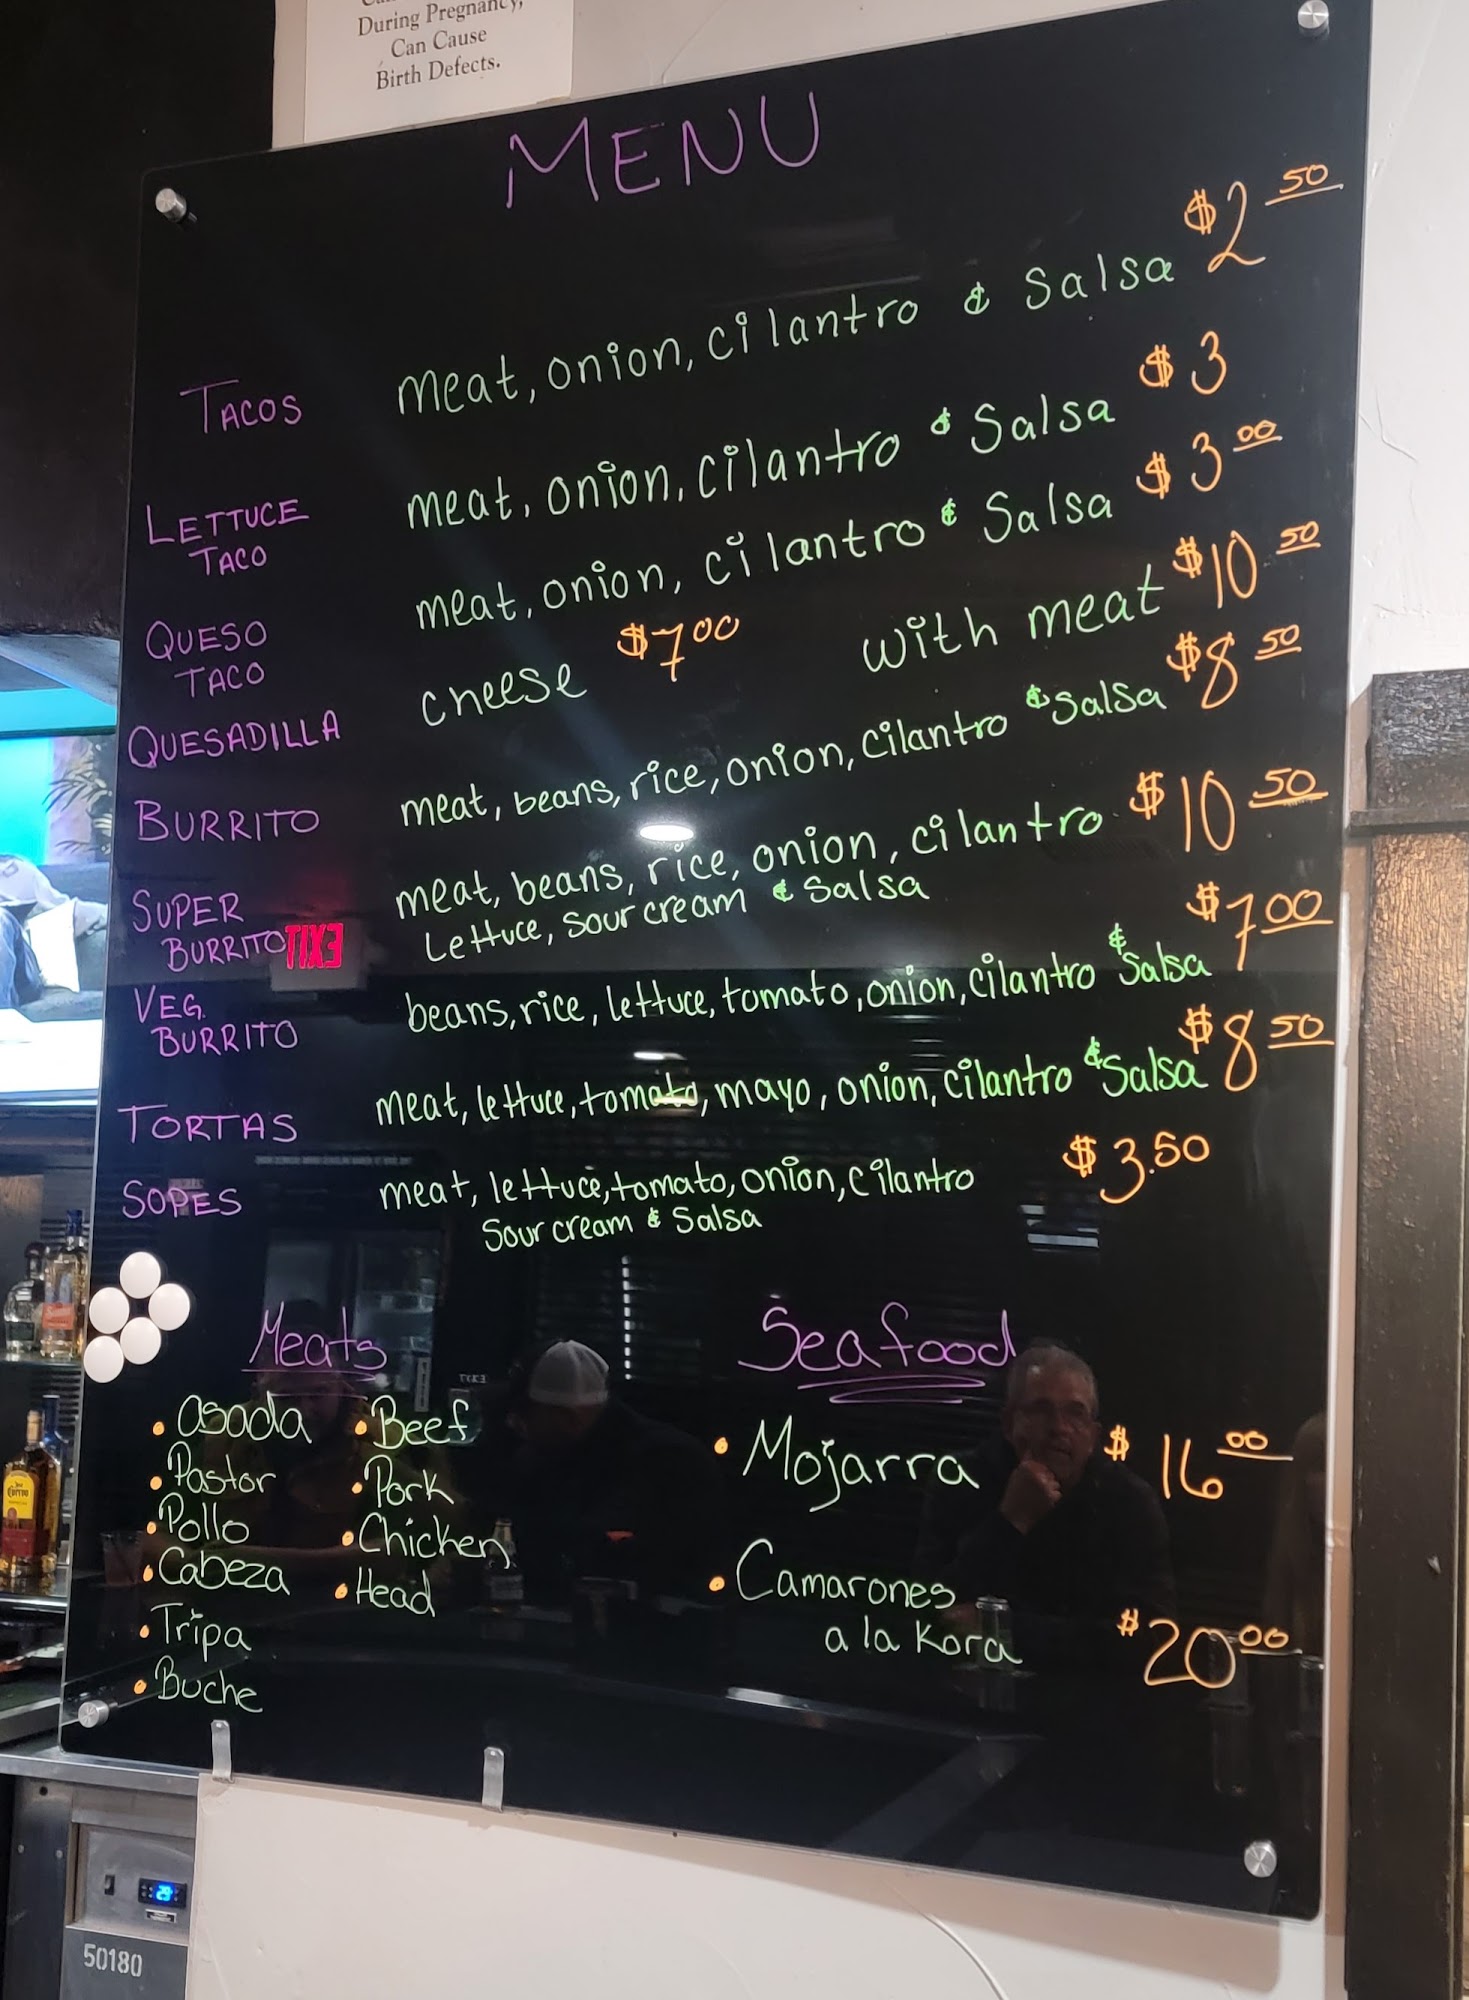 During Pregnancy,
Can Cause
Birth Defects.
MENU
TACOS meat, onion, cilantro & Salsa $2 50
LETTUCE meat, onion, cilantro & Salsa $3
TACO
QUESO meat, onion, cilantro & Salsa $3 00
TACO
QUESADILLA cheese $7 00 with meat $10 50
BURRITO meat, beans, rice, onion, cilantro & Salsa $8 50
SUPER meat, beans, rice, onion, cilantro $10 50
BURRITO Lettuce, Sour cream & Salsa
EXIT
VEG. beans, rice, lettuce, tomato, onion, cilantro & Salsa $7 00
BURRITO
TORTAS meat, lettuce, tomato, mayo, onion, cilantro & Salsa $8 50
SOPES meat, lettuce, tomato, onion, cilantro $3.50
Sour cream & Salsa
Meats
• Asada • Beef
• Pastor • Pork
• Pollo • Chicken
• Cabeza • Head
• Tripa
• Buche
Seafood
• Mojarra $16 00
• Camarones
a la Kora $20 00
50180